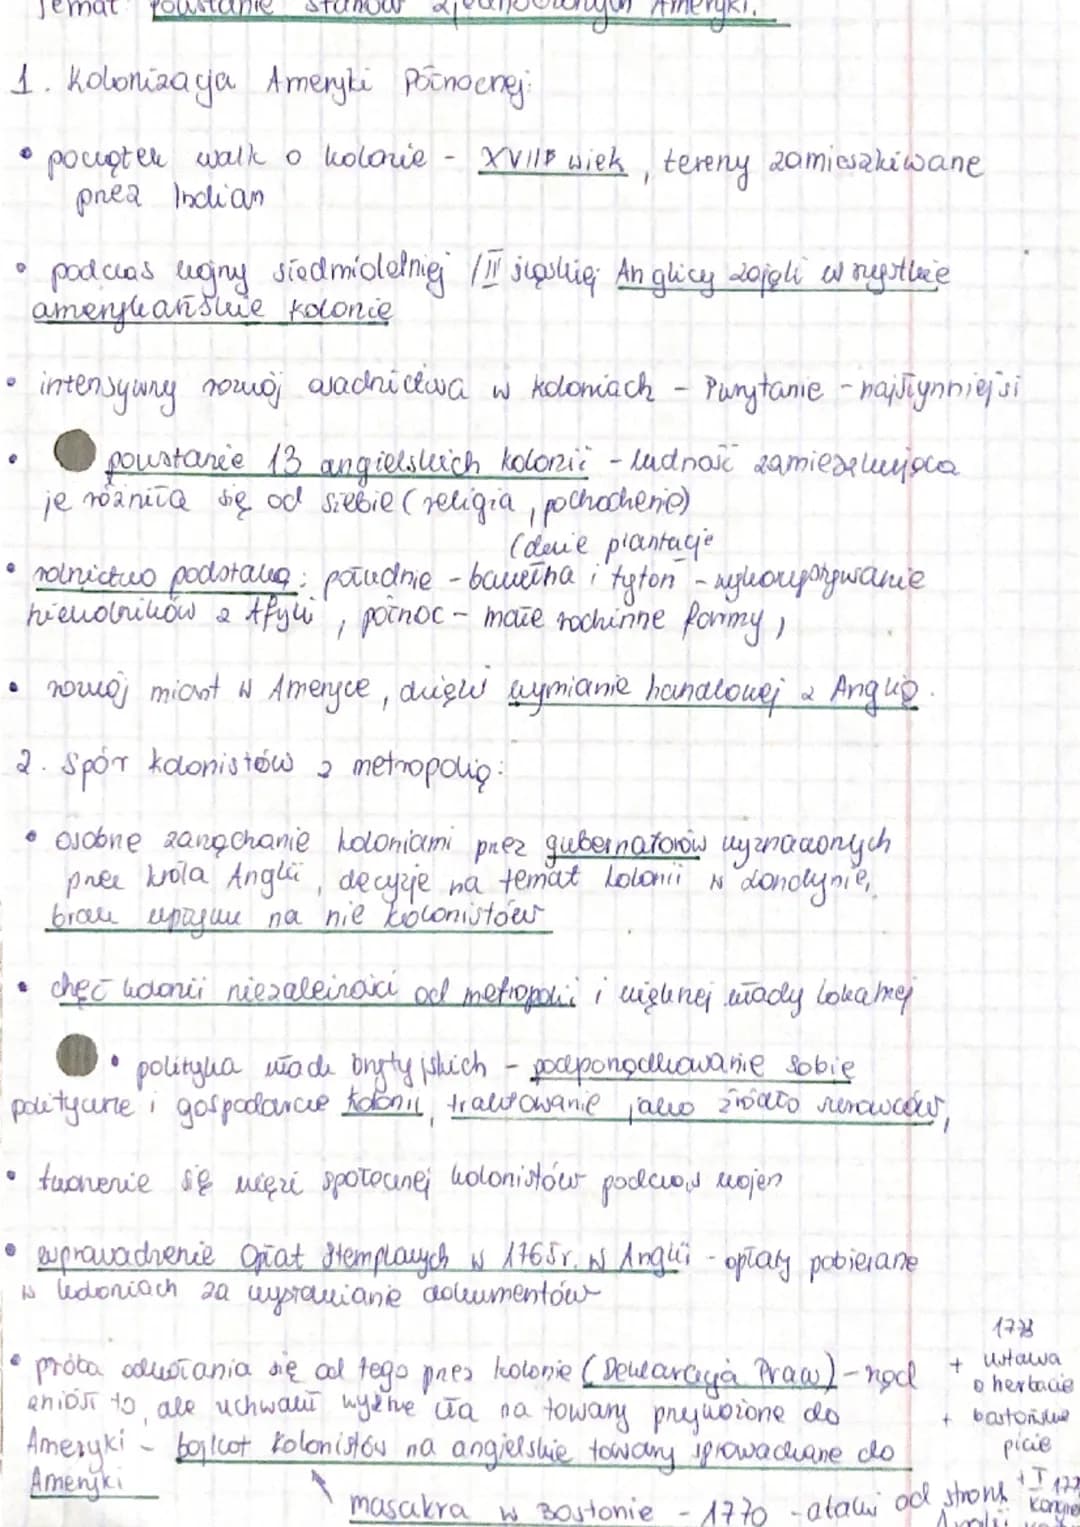 Temat: Powstanie Stanów Zjednoczonych Ameryki.
1. Kolonizacja Ameryki Północnej:
• początek walk o kolonie - XVIII wiek, tereny zamieszkiwane
przez Indian
• podczas wojny siedmioletniej / III śląskiej Anglicy zajęli wszystkie
amerykańskie kolonie
• intensywny rozwój osadnictwa w koloniach - Purytanie - najsłynniejsi
• powstanie 13 angielskich kolonii - ludność zamieszkująca
je różniła się od siebie (religia, pochodzenie)
(duże plantacje
• rolnictwo podstawą: południe - bawełna i tytoń - wykorzystywanie
niewolników z Afryki, północ - małe rodzinne farmy,
• rozwój miast w Ameryce, dzięki wymianie handlowej z Anglią.
2. Spór kolonistów z metropolią:
• osobne zarządzanie koloniami przez gubernatorów wyznaczonych
przez króla Anglii, decyzje na temat kolonii w Londynie,
brak wpływu na nie kolonistów
• chęć kolonii niezależności od metropolii i większej władzy lokalnej
• polityka władz brytyjskich - podporządkowanie sobie
polityczne i gospodarcze kolonii, traktowanie jako źródło surowców,
• tworzenie się więzi społecznej kolonistów podczas wojen
• wprowadzenie Opłat Stemplowych w 1765r. w Anglii - opłaty pobierane
w koloniach za wystawianie dokumentów
1773
• próba odwołania się od tego przez kolonie (Deklaracja Praw) - rząd
+ ustawa
o herbacie
zniósł to, ale uchwalił wyższe cła na towary przywożone do
+ bostońskie
picie
Ameryki - bojkot kolonistów na angielskie towary sprowadzane do
Ameryki
+ I 177
masakra w Bostonie - 1770 - ataki od strony
Kongre
Anglii